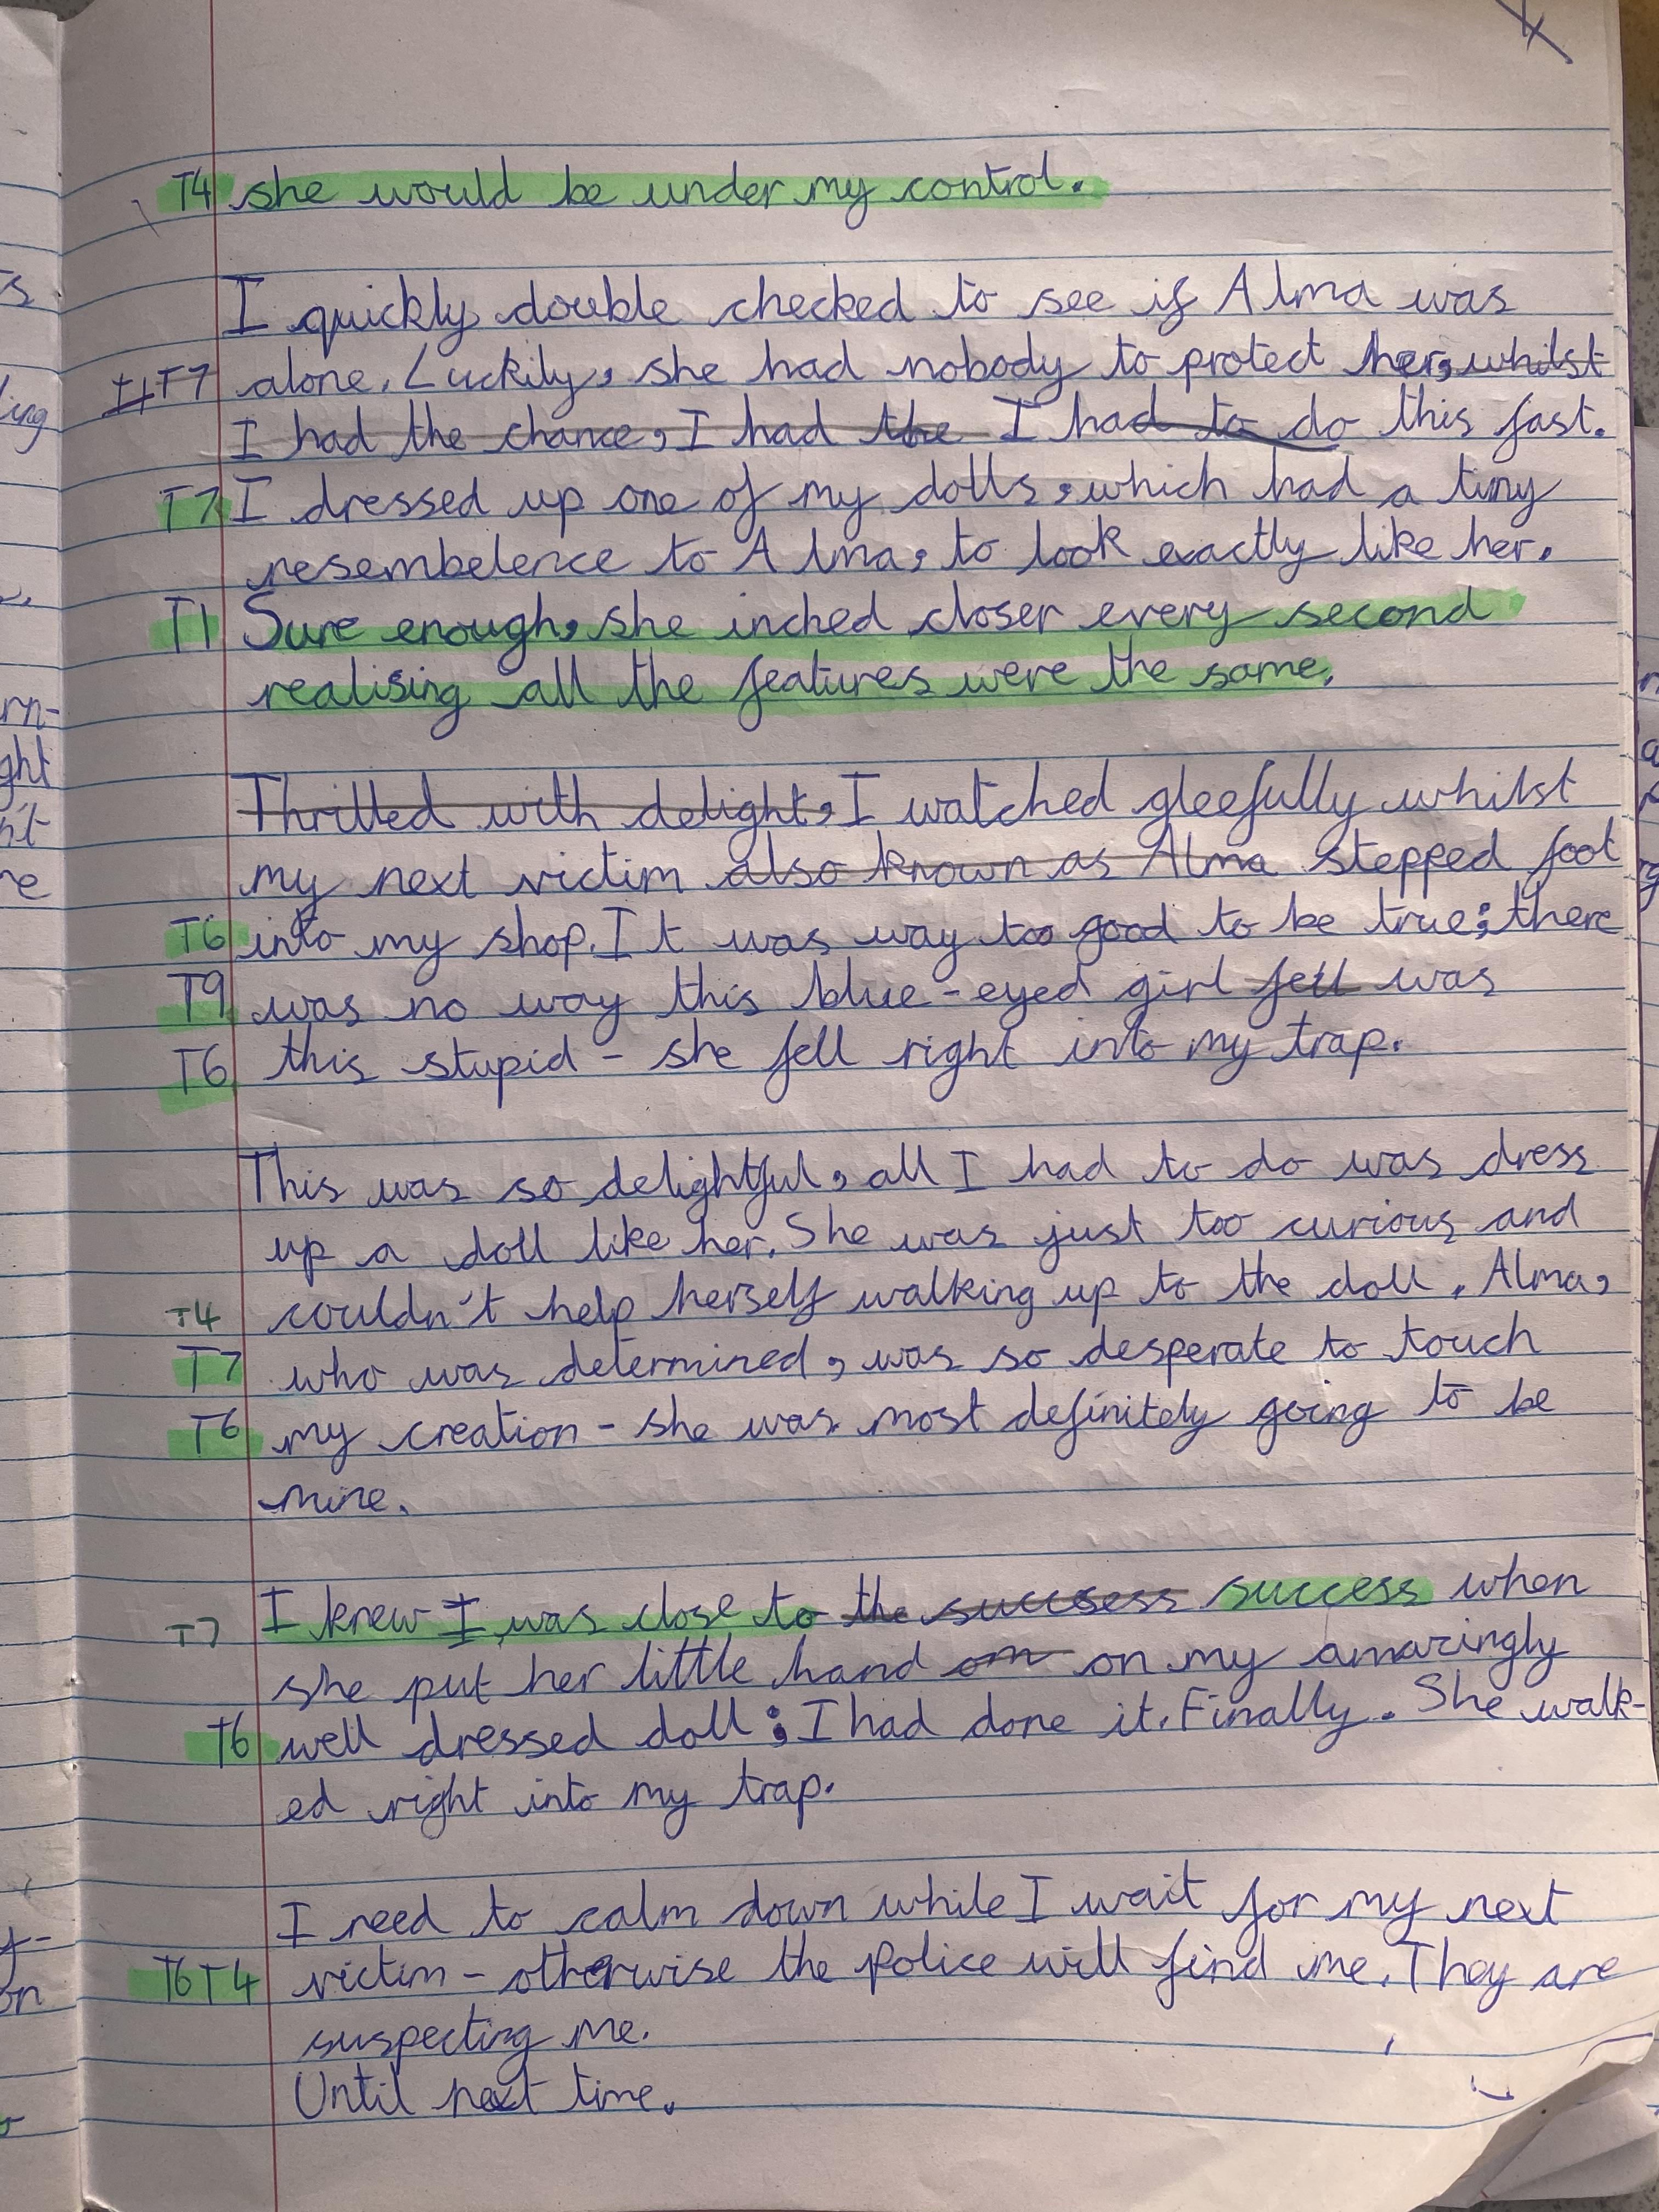 T4 she would be under my control.
I quickly double checked to see if Alma was
T7 alone. Luckily, she had nobody to protect her, whilst
I had the chance, I had the I had to do this fast.
T7 I dressed up one of my dolls, which had a tiny
resembelence to Alma, to look exactly like her.
T1 Sure enough, she inched closer every second
realising all the features were the same.
Thrilled with delight, I watched gleefully whilst
my next victim also known as Alma stepped foot
T6 into my shop. It was way too good to be true; there
T9 was no way this blue-eyed girl fell was
T6 this stupid - she fell right into my trap.
This was so delightful, all I had to do was dress
up a doll like her. She was just too curious and
T4 couldn't help herself walking up to the doll. Alma,
T7 who was determined, was so desperate to touch
T6 my creation - she was most definitely going to be
mine.
T7 I knew I was close to the succsess success when
she put her little hand om on my amazingly
T6 well dressed doll; I had done it. Finally. She walk-
ed right into my trap.
I need to calm down while I wait for my next
T6 T4 victim - otherwise the police will find me. They are
suspecting me.
Until next time.